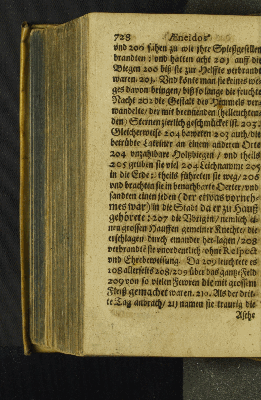 728 Æneidos
vnd 200 sahen zu wie jhre Spießgesellen
brandten: vnd hatten acht 201 auff die
Biegen 200 biß sie zur Helffte verbrandt
waren. 203. Vnd konte man sie keines we-
ges davon bringen/ biß so lange die feuchte
Nacht 202 die Gestalt des Himmels ver-
wandelte/ der mit brennenden (hilleuchten-
den) Steinen zierlich geschmücket ist. 203
Gleicherweise 204 baweten 203 auch/ die
betrübte Lateiner an einem anderen Orte
204 vnzahlbare Holtzbiegen/ vnd theils
205 gruben sie viel 204 Leichname 205
in die Erde: theils führeten sie weg/ 206
vnd brachten sie in benachbarte Oerter/ vnd
sandten einen jeden (der etwas vorneh-
mes war) in die Stadt da er zu Hauß
gehörete: 207 die Vbrigen/ nemlich ei-
nen grossen Hauffen gemeiner Knechte/ die
erschlagen durch einander her lagen/ 208
verbrandte sie vnordentlich/ ohne Respect
vnd Ehrebeweisung. Da 209 leuchtete es
208 allerseits 208/209 über das gantze Feld
209 von so vielen Fewren die mit grossem
Fleiß gemachet waren. 210. Als der drit-
te Tag anbrach/ 211 namen sie traurig die
Asche